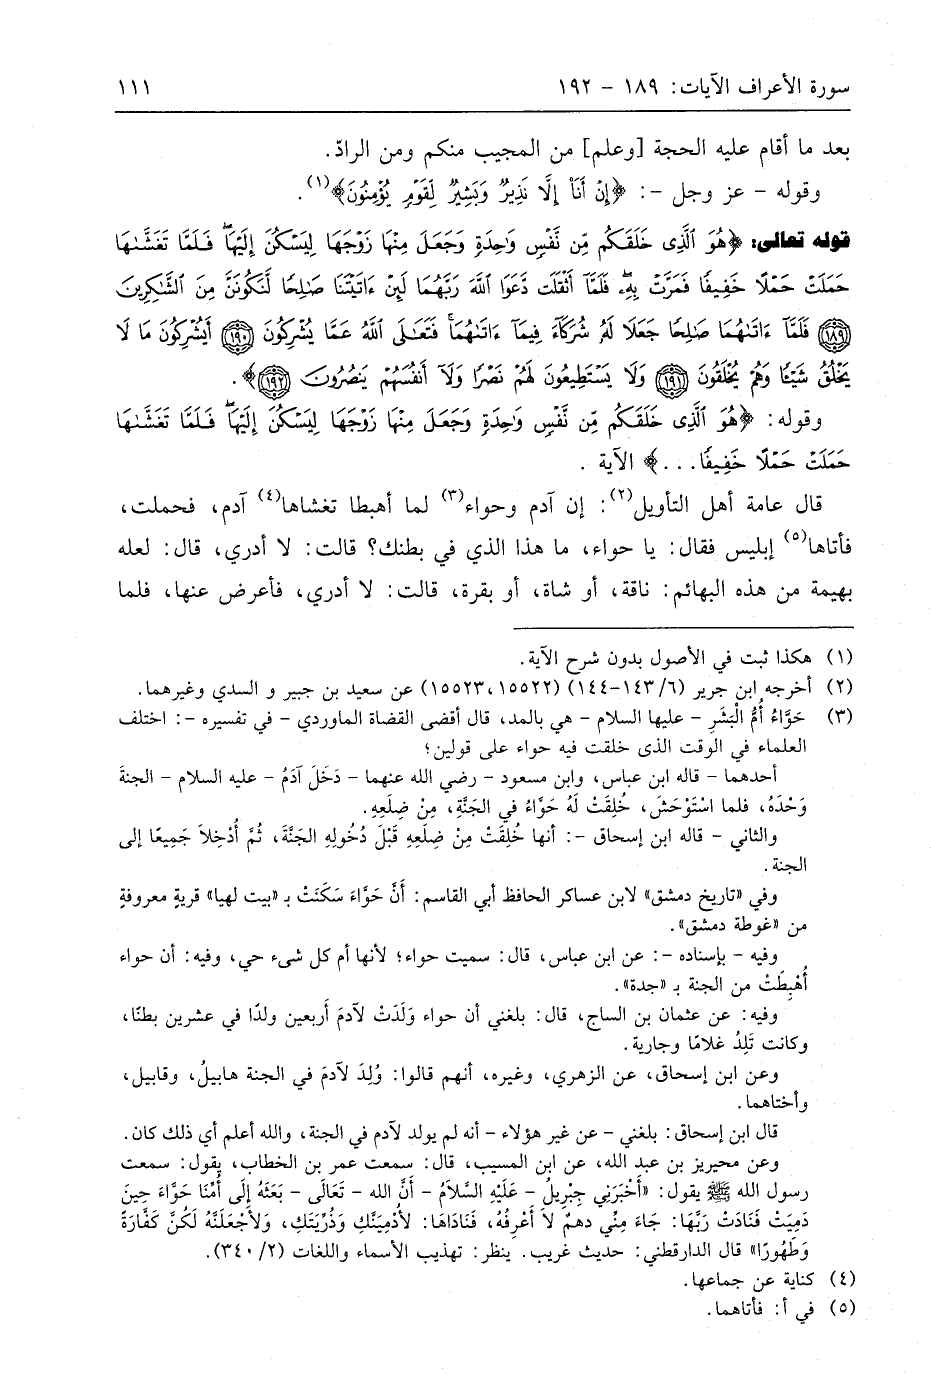 سورة الأعراف الآيات: ١٨٩ - ١٩٢ ١١١
بعد ما أقام عليه الحجة [وعلم] من المجيب منكم ومن الرادّ.
وقوله - عز وجل -: ﴿إِنْ أَنَا۠ إِلَّا نَذِيرٌ وَبَشِيرٌ لِّقَوْمٍ يُؤْمِنُونَ﴾(١).
قوله تعالى: ﴿هُوَ ٱلَّذِى خَلَقَكُم مِّن نَّفْسٍ وَٰحِدَةٍ وَجَعَلَ مِنْهَا زَوْجَهَا لِيَسْكُنَ إِلَيْهَاۖ فَلَمَّا تَغَشَّىٰهَا
حَمَلَتْ حَمْلًا خَفِيفًا فَمَرَّتْ بِهِۦۖ فَلَمَّآ أَثْقَلَت دَّعَوَا ٱللَّهَ رَبَّهُمَا لَئِنْ ءَاتَيْتَنَا صَٰلِحًا لَّنَكُونَنَّ مِنَ ٱلشَّٰكِرِينَ
﴿١٨٩﴾ فَلَمَّآ ءَاتَىٰهُمَا صَٰلِحًا جَعَلَا لَهُۥ شُرَكَآءَ فِيمَآ ءَاتَىٰهُمَاۚ فَتَعَٰلَى ٱللَّهُ عَمَّا يُشْرِكُونَ ﴿١٩٠﴾ أَيُشْرِكُونَ مَا لَا
يَخْلُقُ شَيْـًٔا وَهُمْ يُخْلَقُونَ ﴿١٩١﴾ وَلَا يَسْتَطِيعُونَ لَهُمْ نَصْرًا وَلَآ أَنفُسَهُمْ يَنصُرُونَ ﴿١٩٢﴾﴾.
وقوله: ﴿هُوَ ٱلَّذِى خَلَقَكُم مِّن نَّفْسٍ وَٰحِدَةٍ وَجَعَلَ مِنْهَا زَوْجَهَا لِيَسْكُنَ إِلَيْهَاۖ فَلَمَّا تَغَشَّىٰهَا
حَمَلَتْ حَمْلًا خَفِيفًا...﴾ الآية .
قال عامة أهل التأويل(٢): إن آدم وحواء(٣) لما أهبطا تغشاها(٤) آدم، فحملت،
فأتاها(٥) إبليس فقال: يا حواء، ما هذا الذي في بطنك؟ قالت: لا أدري، قال: لعله
بهيمة من هذه البهائم: ناقة، أو شاة، أو بقرة، قالت: لا أدري، فأعرض عنها، فلما
(١) هكذا ثبت في الأصول بدون شرح الآية.
(٢) أخرجه ابن جرير (٦/ ١٤٣-١٤٤) (١٥٥٢٢، ١٥٥٢٣) عن سعيد بن جبير و السدي وغيرهما.
(٣) حَوَّاءُ أُمُّ الْبَشَرِ - عليها السلام - هي بالمد، قال أقضى القضاة الماوردي - في تفسيره -: اختلف
العلماء في الوقت الذى خلقت فيه حواء على قولين؛
أحدهما - قاله ابن عباس، وابن مسعود - رضي الله عنهما - دَخَلَ آدَمُ - عليه السلام - الجنةَ
وَحْدَهُ، فلما اسْتَوْحَشَ، خُلِقَتْ لَهُ حَوَّاءُ في الجَنَّةِ، مِنْ ضِلَعِهِ.
والثاني - قاله ابن إسحاق -: أنها خُلِقَتْ مِنْ ضِلَعِهِ قَبْلَ دُخُولِهِ الجَنَّةَ، ثُمَّ أُدْخِلاَ جَمِيعًا إلى
الجنة.
وفي «تاريخ دمشق» لابن عساكر الحافظ أبي القاسم: أَنَّ حَوَّاءَ سَكَنَتْ بـ «بيت لهيا» قريةٍ معروفةٍ
من «غوطة دمشق».
وفيه - بإسناده -: عن ابن عباس، قال: سميت حواء؛ لأنها أم كل شىء حي، وفيه: أن حواء
أُهْبِطَتْ من الجنة بـ «جدة».
وفيه: عن عثمان بن الساج، قال: بلغني أن حواء وَلَدَتْ لآدمَ أربعين ولدًا في عشرين بطنًا،
وكانت تَلِدُ غلامًا وجارية.
وعن ابن إسحاق، عن الزهري، وغيره، أنهم قالوا: وُلِدَ لآدمَ في الجنة هابيلُ، وقابيل،
وأختاهما.
قال ابن إسحاق: بلغني - عن غير هؤلاء - أنه لم يولد لآدم في الجنة، والله أعلم أي ذلك كان.
وعن محيريز بن عبد الله، عن ابن المسيب، قال: سمعت عمر بن الخطاب، يقول: سمعت
رسول الله ﷺ يقول: «أَخْبَرَنِي جِبْرِيلُ - عَلَيْهِ السَّلاَمُ - أَنَّ الله - تَعَالَى - بَعَثَهُ إِلَى أُمِّنَا حَوَّاءَ حِينَ
دَمِيَتْ فَنَادَتْ رَبَّهَا: جَاءَ مِنِّي دهمٌ لاَ أَعْرِفُهُ، فَنَادَاهَا: لأُدْمِيَنَّكِ وَذُرِّيَتَكِ، وَلأَجْعَلَنَّهُ لَكُنَّ كَفَّارَةً
وَطَهُورًا» قال الدارقطني: حديث غريب. ينظر: تهذيب الأسماء واللغات (٢/ ٣٤٠).
(٤) كناية عن جماعها.
(٥) في أ: فأتاهما.